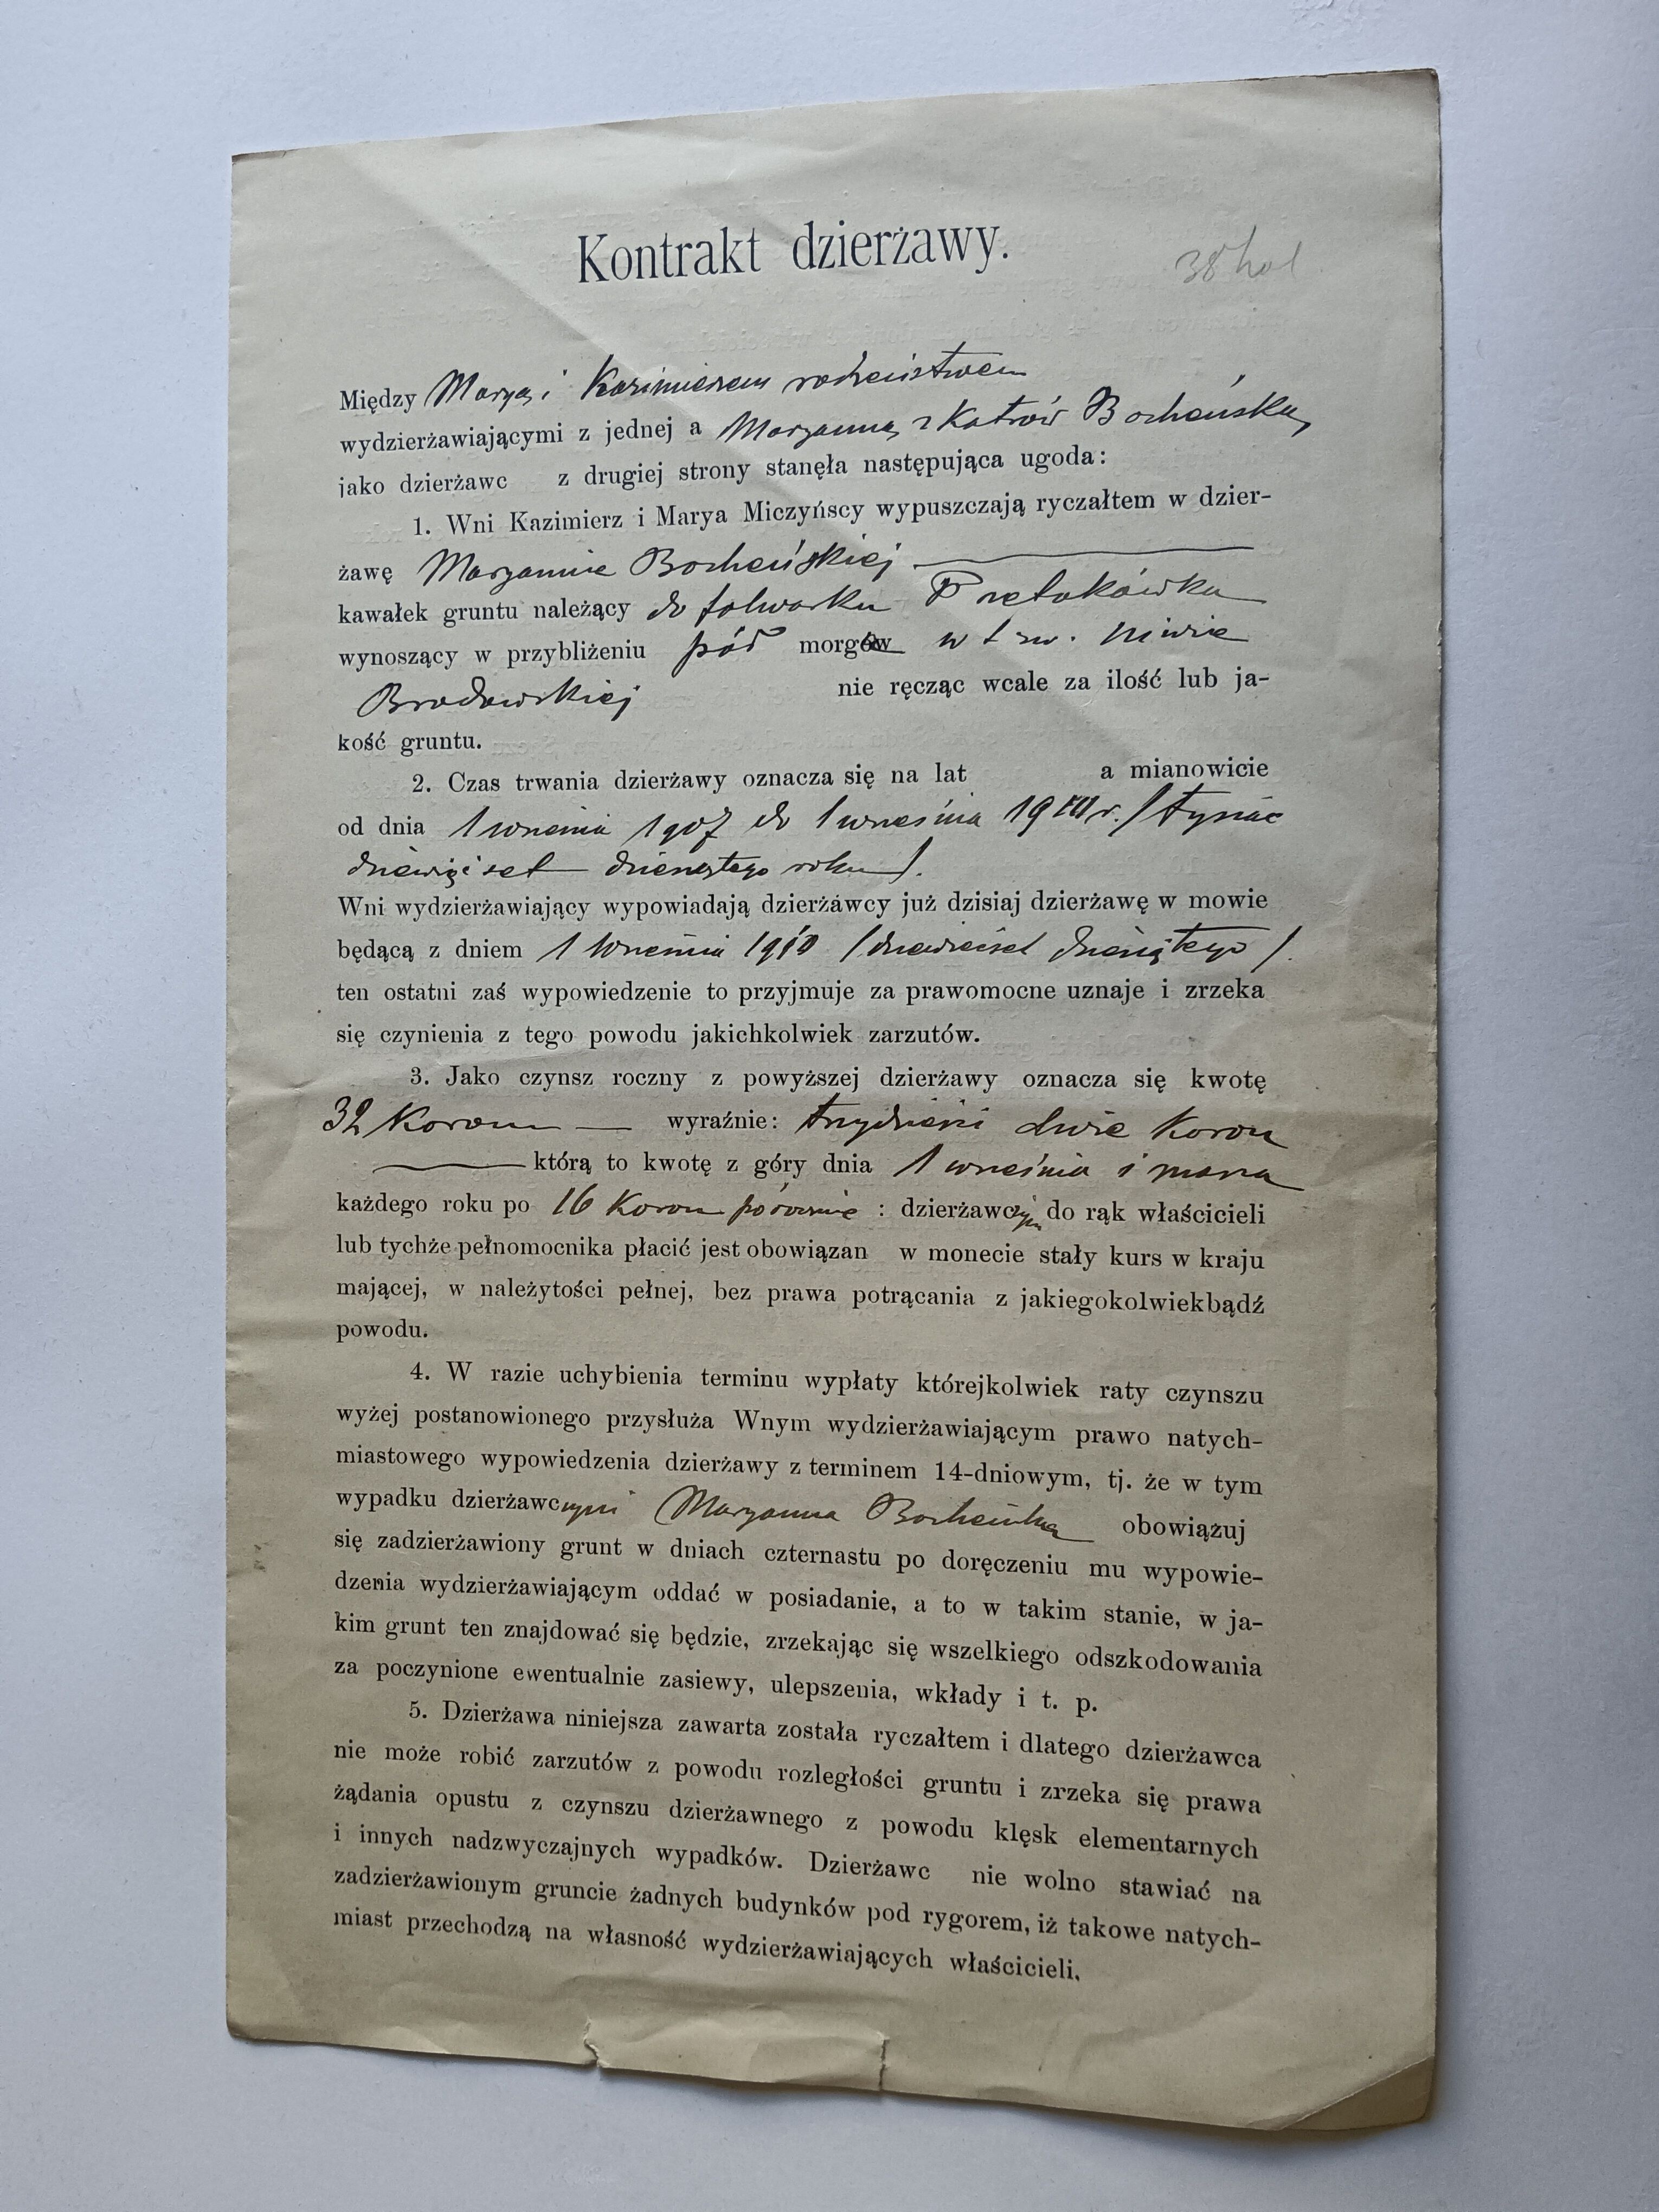 Kontrakt dzierżawy.
38 hal
Między Maryą i Kazimierzem rodzeństwem
wydzierżawiającymi z jednej a Maryanną z Katrów Bocheńską
jako dzierżawc z drugiej strony stanęła następująca ugoda:
1. Wni Kazimierz i Marya Miczyńscy wypuszczają ryczałtem w dzier-
żawę Maryannie Bocheńskiej
kawałek gruntu należący do folwarku
wynoszący w przybliżeniu pół morgów w t zw. niwie
Brodowskiej nie ręcząc wcale za ilość lub ja-
kość gruntu.
2. Czas trwania dzierżawy oznacza się na lat a mianowicie
od dnia 1 września 1907 do 1 września 1910 r. / tysiąc
dziewięćset dziesiątego roku /.
Wni wydzierżawiający wypowiadają dzierżawcy już dzisiaj dzierżawę w mowie
będącą z dniem 1 Września 1910 / dziewięćset dziesiątego /.
ten ostatni zaś wypowiedzenie to przyjmuje za prawomocne uznaje i zrzeka
się czynienia z tego powodu jakichkolwiek zarzutów.
3. Jako czynsz roczny z powyższej dzierżawy oznacza się kwotę
32 Koron — wyraźnie: trzydzieści dwie Koron
którą to kwotę z góry dnia 1 września i marca
każdego roku po 16 Koron półrocznie : dzierżawczyni do rąk właścicieli
lub tychże pełnomocnika płacić jest obowiązan w monecie stały kurs w kraju
mającej, w należytości pełnej, bez prawa potrącania z jakiegokolwiekbądź
powodu.
4. W razie uchybienia terminu wypłaty którejkolwiek raty czynszu
wyżej postanowionego przysłuża Wnym wydzierżawiającym prawo natych-
miastowego wypowiedzenia dzierżawy z terminem 14-dniowym, tj. że w tym
wypadku dzierżawczyni Maryanna Bocheńska obowiązuj
się zadzierżawiony grunt w dniach czternastu po doręczeniu mu wypowie-
dzenia wydzierżawiającym oddać w posiadanie, a to w takim stanie, w ja-
kim grunt ten znajdować się będzie, zrzekając się wszelkiego odszkodowania
za poczynione ewentualnie zasiewy, ulepszenia, wkłady i t. p.
5. Dzierżawa niniejsza zawarta została ryczałtem i dlatego dzierżawca
nie może robić zarzutów z powodu rozległości gruntu i zrzeka się prawa
żądania opustu z czynszu dzierżawnego z powodu klęsk elementarnych
i innych nadzwyczajnych wypadków. Dzierżawc nie wolno stawiać na
zadzierżawionym gruncie żadnych budynków pod rygorem, iż takowe natych-
miast przechodzą na własność wydzierżawiających właścicieli.